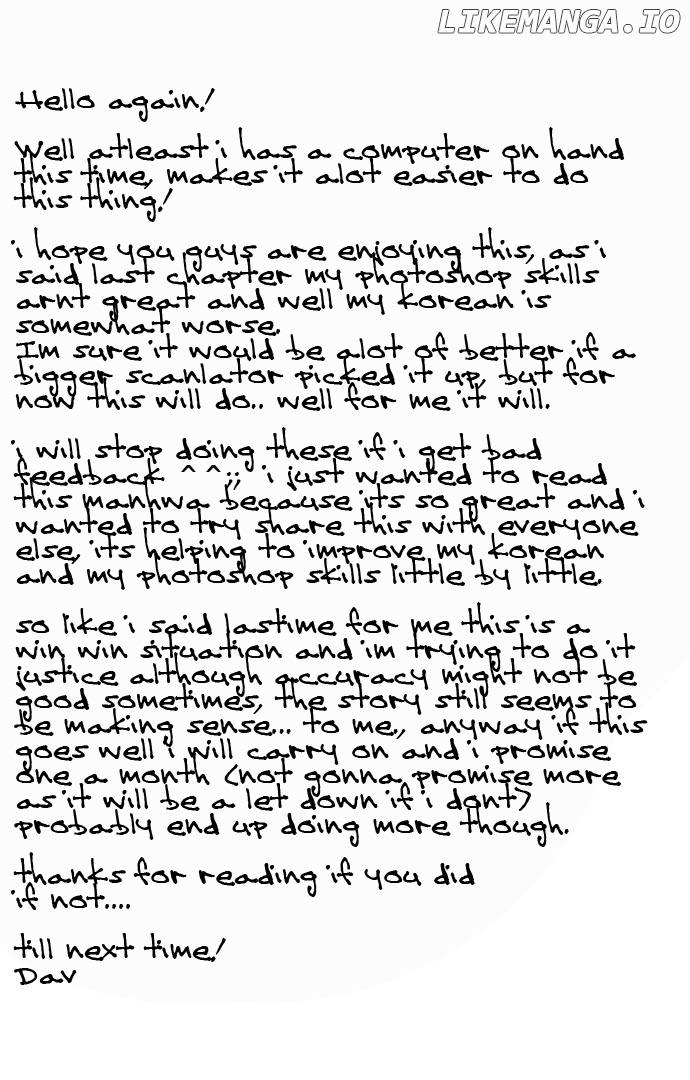 LIKEMANGA.IO
Hello again!
Well atleast i has a computer on hand
this time, makes it alot easier to do
this thing!
i hope you guys are enjoying this, as i
said last chapter my photoshop skills
arnt great and well my korean is
somewhat worse.
Im sure it would be alot of better if a
bigger scanlator picked it up, but for
now this will do.. well for me it will.
i will stop doing these if i get bad
feedback ^^;; i just wanted to read
this manhwa because its so great and i
wanted to try share this with everyone
else, its helping to improve my korean
and my photoshop skills little by little.
so like i said lastime for me this is a
win win situation and im trying to do it
justice although accuracy might not be
good sometimes, the story still seems to
be making sense... to me., anyway if this
goes well i will carry on and i promise
one a month (not gonna promise more
as it will be a let down if i dont)
probably end up doing more though.
thanks for reading if you did
if not....
till next time!
Dav